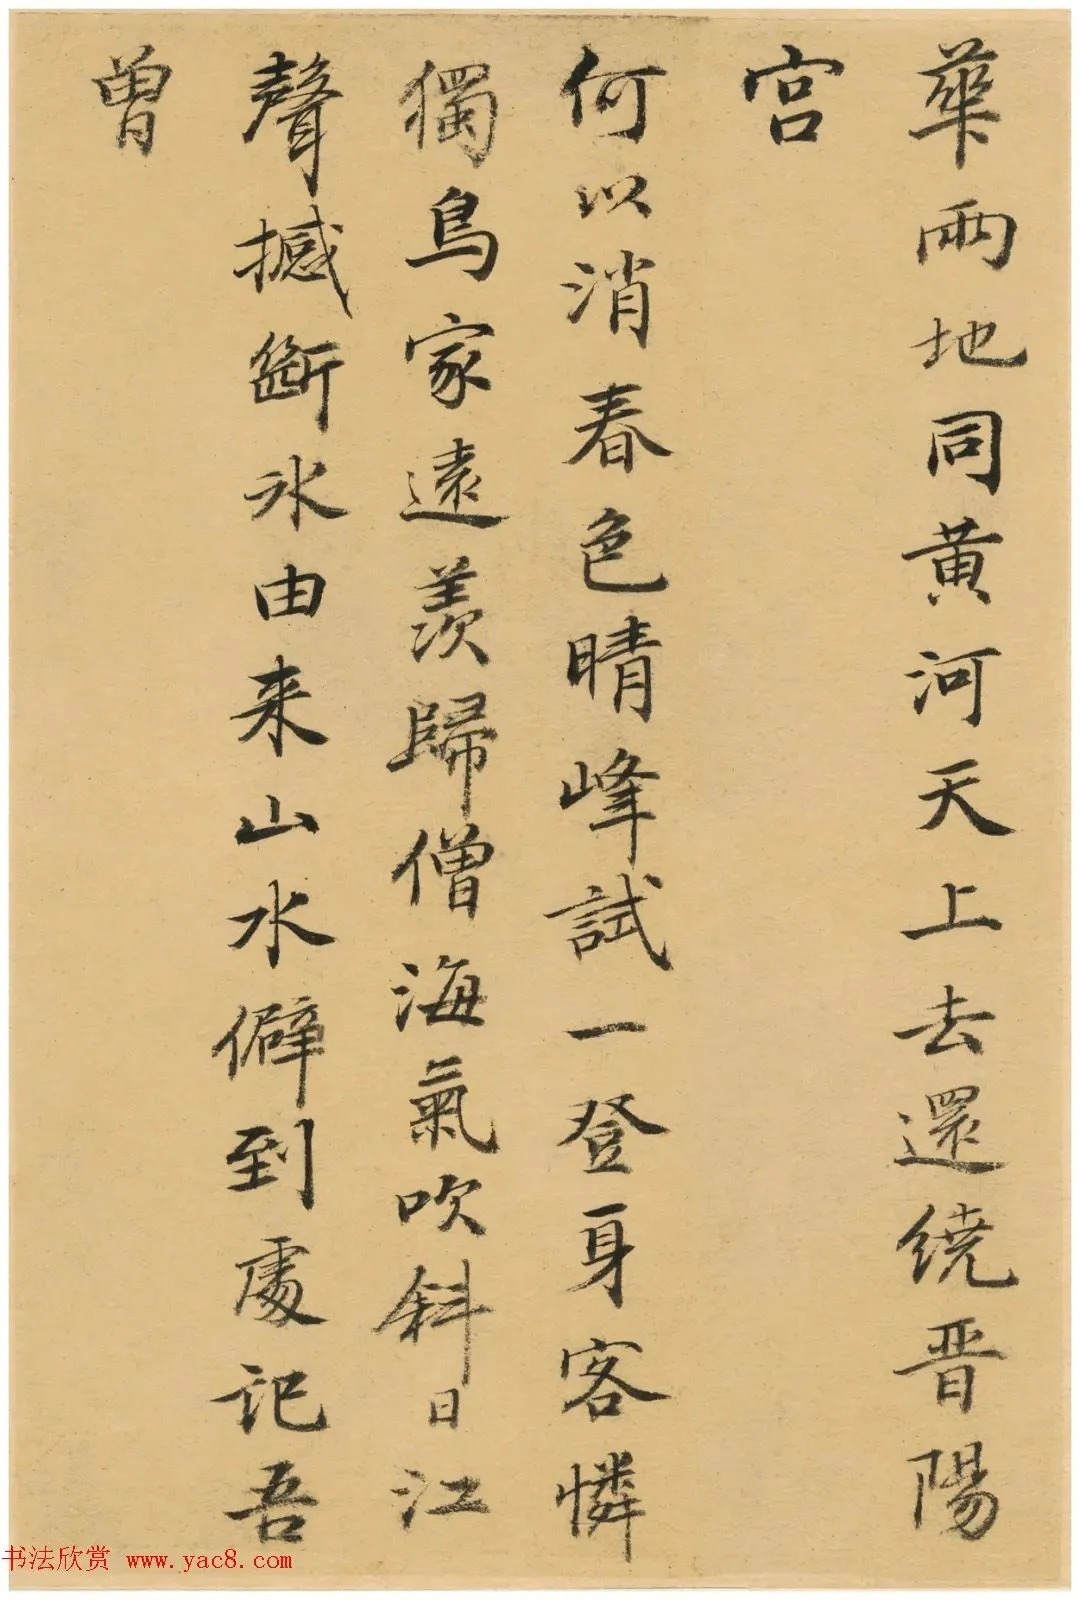 華兩地同黄河天上去還繞晋陽
宫
何以消春色晴峰試一登身客憐
獨鳥家遠羨歸僧海氣吹斜日江
聲撼斷冰由来山水僻到處记吾
曾
书法欣赏 www.yac8.com